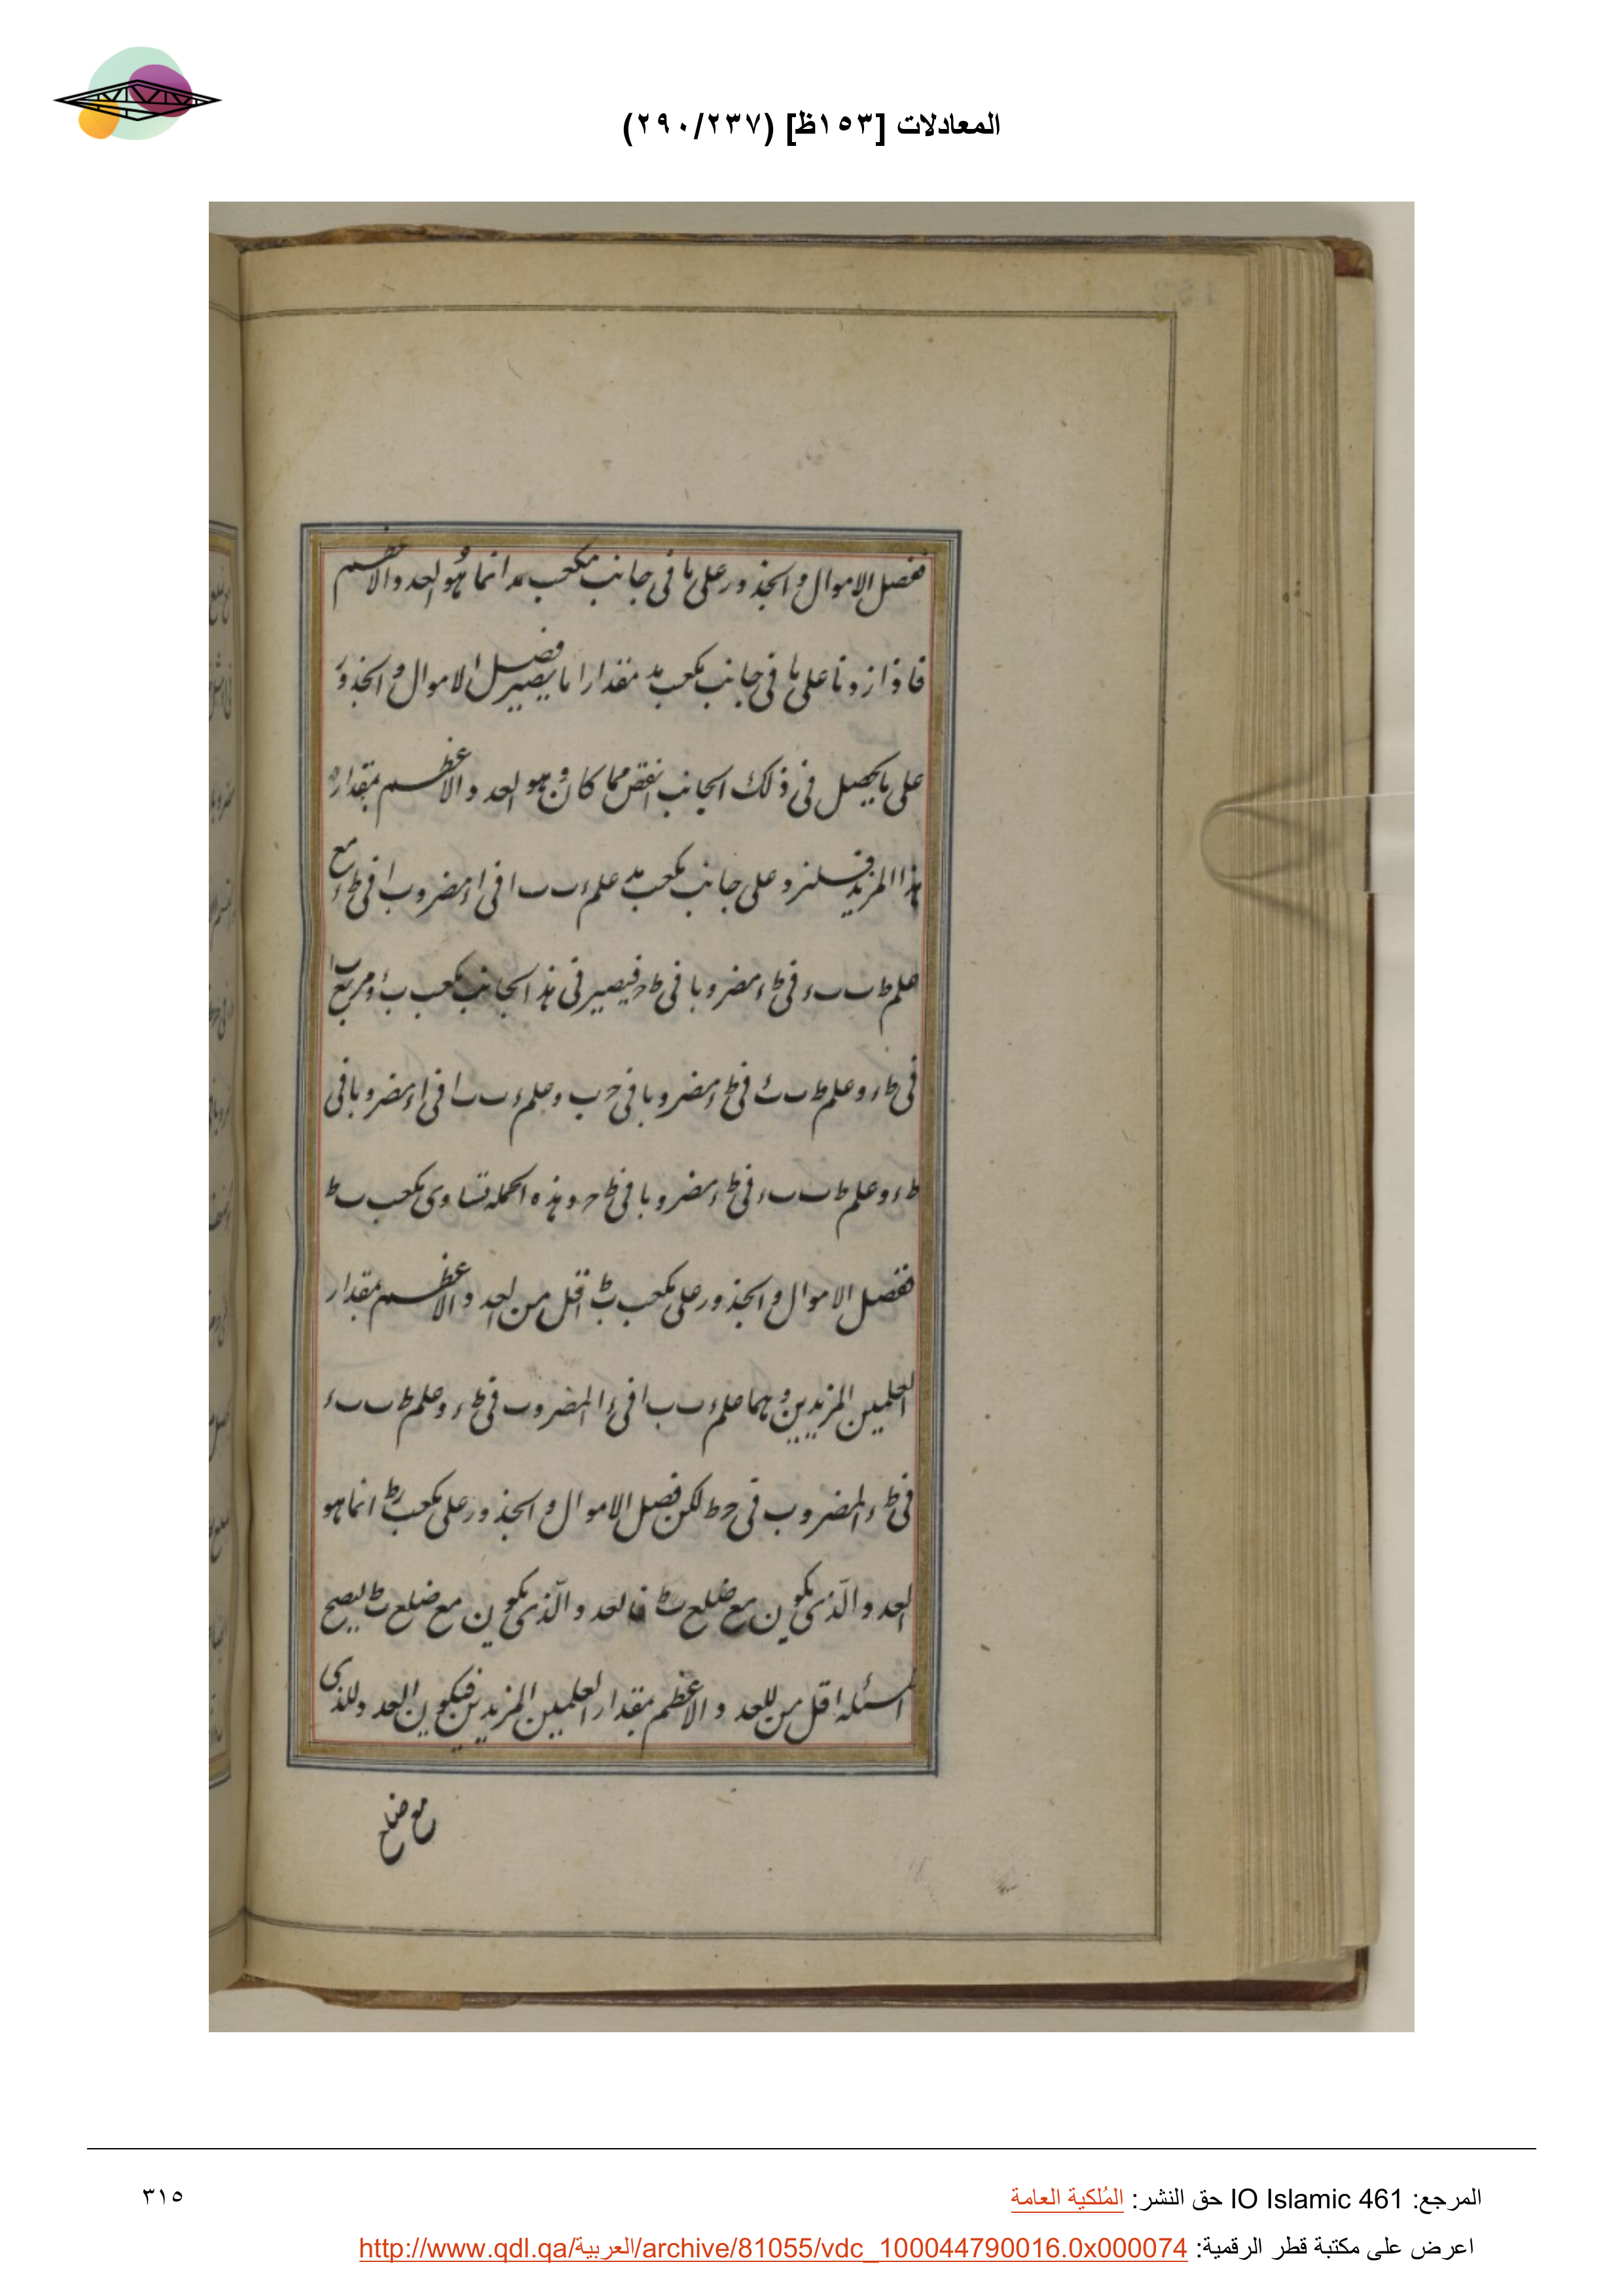 المعادلات [١٥٣ظ] (٢٩٠/٢٣٧)
ففضل الاموال والجذور على ما فى جانب مكعب مد انما هو العدد الاعظم
فاذا زدنا على ما فى جانب مكعب مد مقدارا ما يصير فضل الاموال والجذور
على ما يحصل فى ذلك الجانب انقص مما كان وهو العدد الاعظم بمقدار
هذا المزيد فلنزد على جانب مكعب مد علم ء ب ب ا فى ا ء مضروب ا فى ط ء مع
علم ط ب ب ء فى ط ء مضروبا فى ط ح فيصير فى هذا الجانب مكعب ب ء ومربع ب ا
فى ط ء وعلم ط ب ب ء فى ط ء مضروبا فى ح ب وعلم ء ب ب ا فى ا ء مضروبا فى
ط ء وعلم ط ب ب ء فى ط ء مضروبا فى ط ح وهذه الجمله تساوى مكعب ب ط
ففضل الاموال والجذور على مكعب ب ط اقل من العدد الاعظم بمقدار
العلمين المزيدين وهما علم ء ب ب ا فى ء ا المضروب فى ط ء وعلم ط ب ب ء
فى ط ء المضروب فى ح ط لكن فضل الاموال والجذور على مكعب ب ط انما هو
العدد الذى يكون مع ضلع ب ط فالعدد الذى يكون مع ضلع ب ط ليصح
المسئله اقل من العدد الاعظم بمقدار العلمين المزيدين فيكون العدد للذى
مع ضلع
المرجع: IO Islamic 461 حق النشر: المُلكية العامة
٣١٥
اعرض على مكتبة قطر الرقمية: http://www.qdl.qa/العربية/archive/81055/vdc_100044790016.0x000074